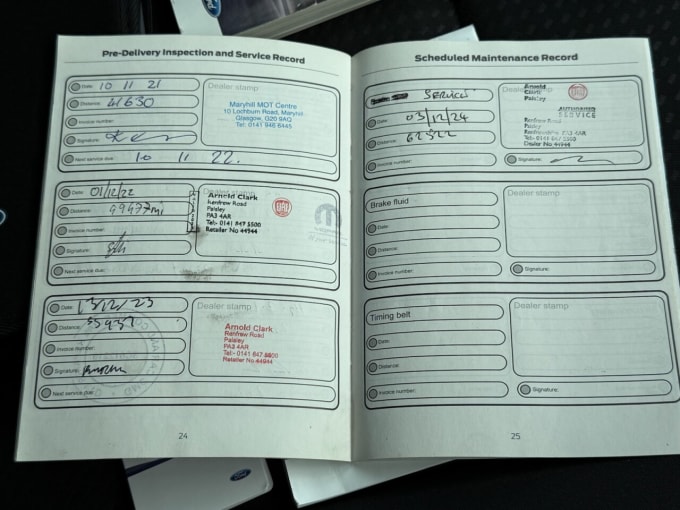 Pre-Delivery Inspection and Service Record
Date: 10 11 21
Distance: 41630
Invoice number:
Signature:
Next service due: 10 11 22.
Dealer stamp
Maryhill MOT Centre
10 Lochburn Road, Maryhill
Glasgow, G20 9AQ
Tel: 0141 946 6445
Date: 01/12/22
Distance: 49477mi
Invoice number:
Signature:
Next service due:
Dealer stamp
Arnold Clark
Renfrew Road
Paisley
PA3 4AR
Tel:- 0141 847 5500
Retailer No 44944
Date: 13/12/23
Distance: 55937
Invoice Number:
Signature:
Next service due:
Dealer stamp
Arnold Clark
Renfrew Road
Paisley
PA3 4AR
Tel:- 0141 847 5500
Retailer No 44944
24
Scheduled Maintenance Record
SERVICE
Date: 03/12/24
Distance: 62522
Invoice number:
Arnold
Clark
Paisley
SERVICE
Renfrew Road
Paisley
Signature:
Brake fluid
Date:
Distance:
Invoice number:
Dealer stamp
Signature:
Timing belt
Date:
Distance:
Invoice number:
Dealer stamp
Signature:
25
Ford